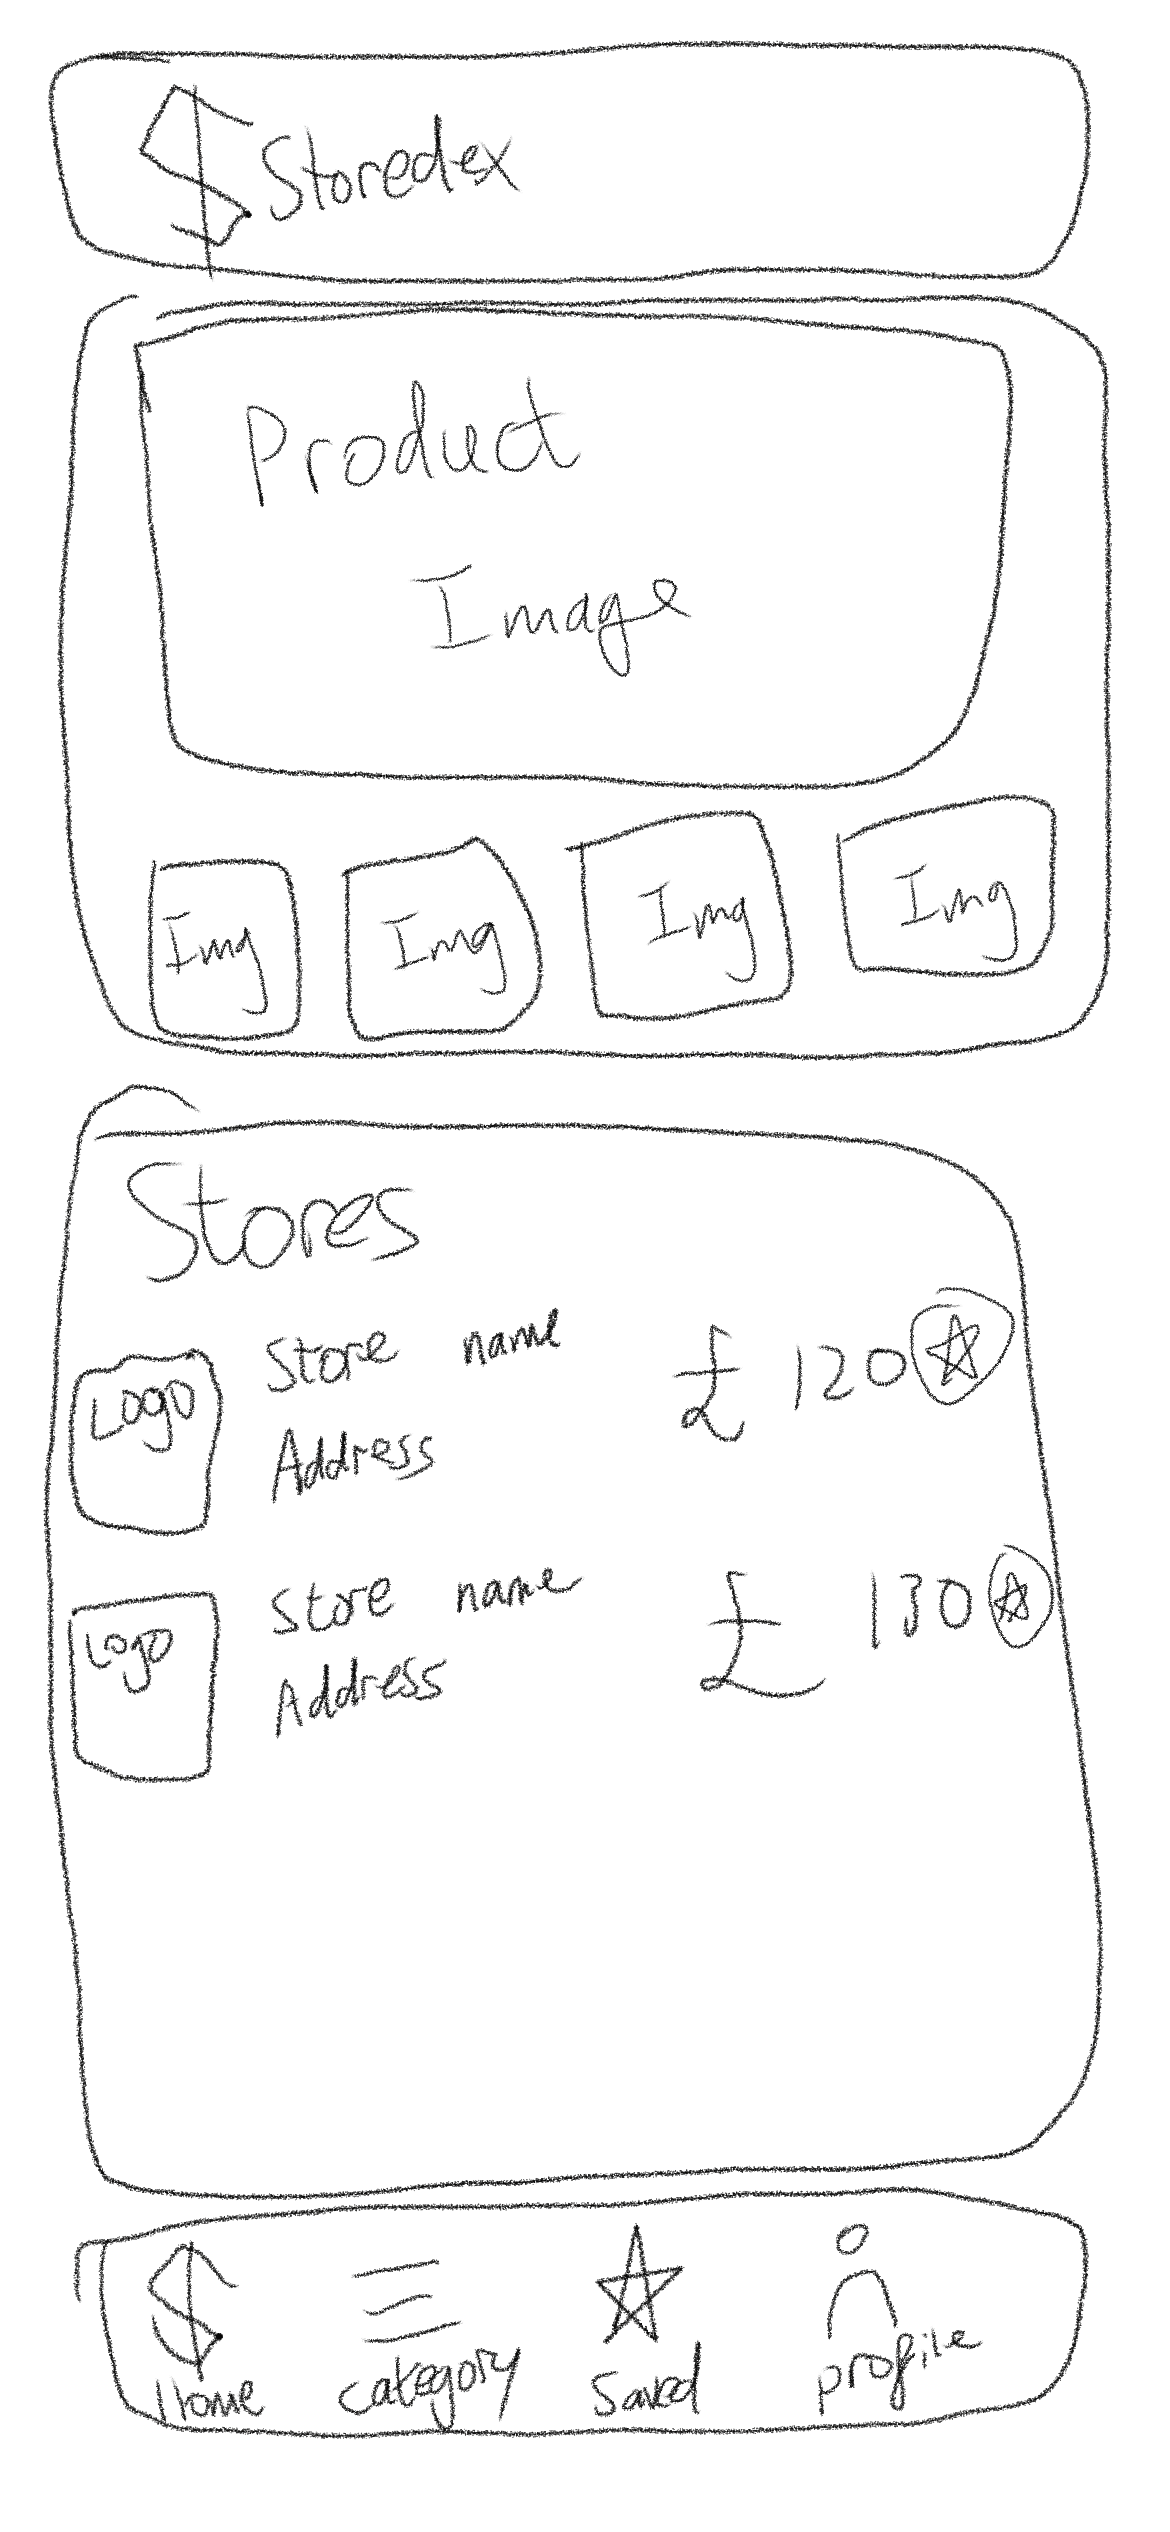 $ Storedex
Product
Image
Img Img Img Img
Stores
Logo Store name £ 120
Address
Logo Store name £ 130
Address
$
Home category Saved profile